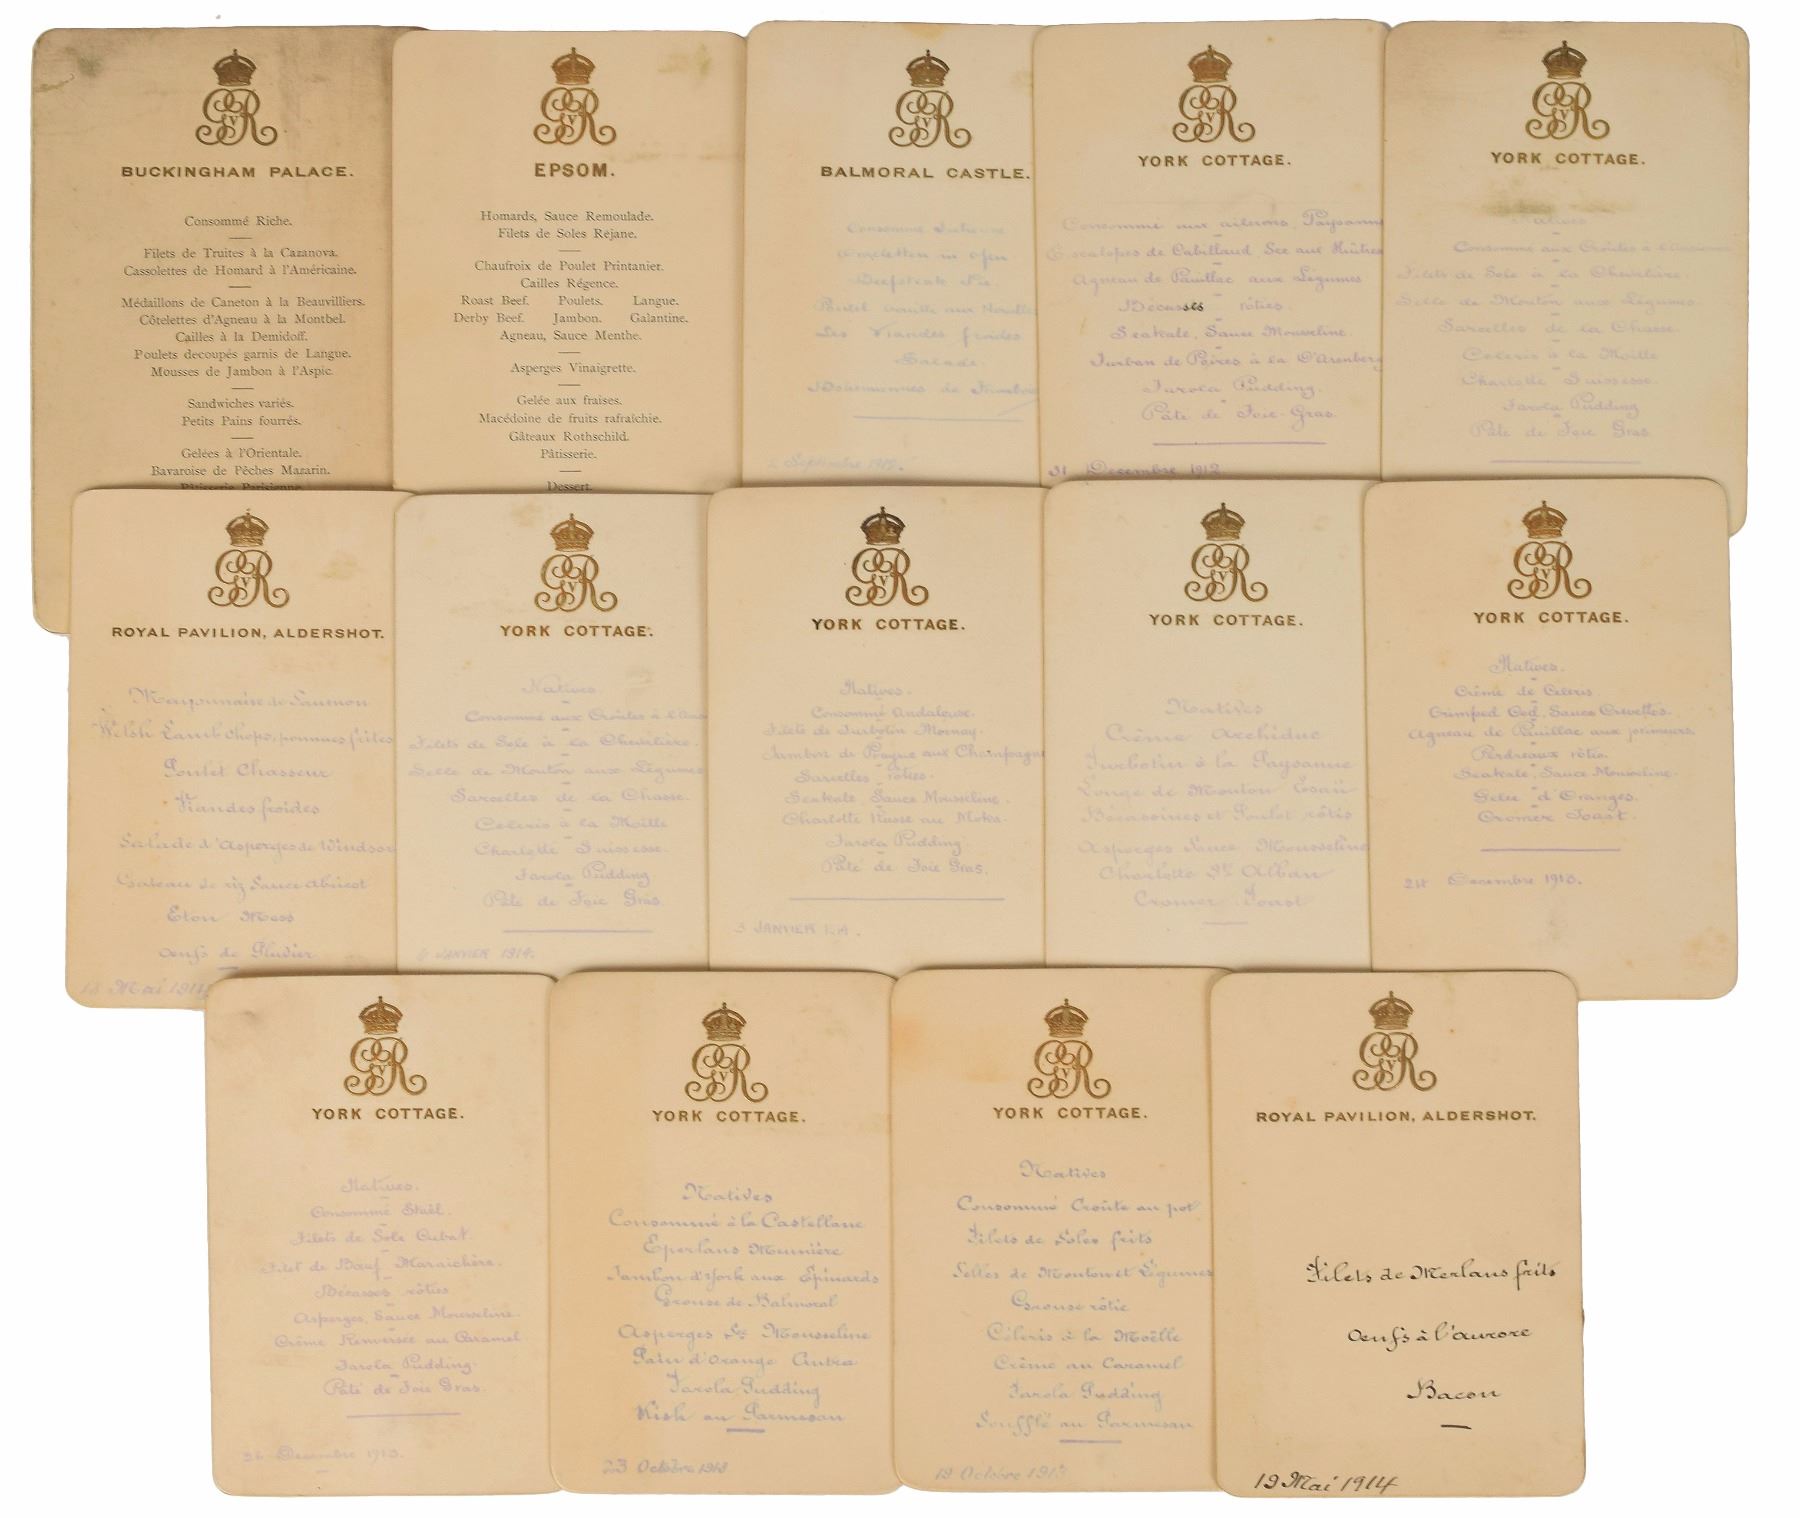 BUCKINGHAM PALACE.
Consommé Riche.
Filets de Truites à la Cazanova.
Cassolettes de Homard à l'Américaine.
Médaillons de Caneton à la Beauvilliers.
Côtelettes d'Agneau à la Montbel.
Cailles à la Demidoff.
Poulets decoupés garnis de Langue.
Mousses de Jambon à l'Aspic.
Sandwiches variés.
Petits Pains fourrés.
Gelées à l'Orientale.
Bavaroise de Pêches Mazarin.
Pâtisserie Parisienne
EPSOM.
Homards, Sauce Remoulade.
Filets de Soles Réjane.
Chaufroix de Poulet Printanier.
Cailles Régence.
Roast Beef. Poulets. Langue.
Derby Beef. Jambon. Galantine.
Agneau, Sauce Menthe.
Asperges Vinaigrette.
Gelée aux fraises.
Macédoine de fruits rafraîchie.
Gâteaux Rothschild.
Pâtisserie.
Dessert.
BALMORAL CASTLE.
Consommé
Beefsteak Pie
Les Viandes froides
Salade.
Septembre
YORK COTTAGE.
Consommé aux ailerons, Paysanne
Escalopes de Cabillaud Sce aux Huîtres
Agneau de Pauillac aux Légumes
Bécasses rôties.
Seakale, Sauce Mousseline.
Turban de Poires à la D'Arenberg
Tarola Pudding.
Pâte de Foie-Gras.
31 Decembre 1912.
YORK COTTAGE.
Natives
Consommé aux Croûtes à l'Ancienne
Filets de Sole à la Chevalière.
Selle de Mouton aux Légumes.
Sarcelles de la Chasse.
Celeris à la Moëlle
Charlotte Suissesse.
Tarola Pudding
Pâte de Foie Gras.
ROYAL PAVILION, ALDERSHOT.
Mayonnaise de Saumon
Welsh Lamb chops, pommes frites
Poulet Chasseur
Viandes froides
Salade d'Asperges de Windsor
Gateau de riz Sauce abricot
Eton Mess
Oeufs de Pluvier
18 Mai 1914
YORK COTTAGE.
Natives.
Consommé aux Croûtes à l'Anc
Filets de Sole à la Chevalière.
Selle de Mouton aux Légumes
Sarcelles de la Chasse.
Celeris à la Moëlle
Charlotte Suissesse.
Tarola Pudding
Pâte de Foie Gras.
JANVIER 1914.
YORK COTTAGE.
Natives.
Consommé Andalouse.
Filets de Turbotin Mornay.
Jambon de Prague aux Champagne
Sarcelles rôties.
Seakale, Sauce Mousseline.
Charlotte Russe au Moka.
Tarola Pudding
Pâté de Foie Gras.
3 JANVIER
YORK COTTAGE.
Natives
Crême Archiduc
Turbotin à la Paysanne
Longe de Mouton
Bécassines et Poulet rôtis
Asperges Sauce Mousseline
Charlotte St Alban
Cromer Toast
YORK COTTAGE.
Natives.
Crême de Celeris.
Crimped Cod, Sauce Crevettes.
Agneau de Pauillac aux primeurs.
Perdreaux rôtis.
Seakale, Sauce Mousseline.
Gelée d'Oranges.
Cromer Toast.
Decembre 1913.
YORK COTTAGE.
Natives.
Consommé Staël.
Filets de Sole Cubat.
Filet de Bœuf Maraichère.
Bécasses rôties
Asperges, Sauce Mousseline.
Crême Renversée au Caramel
Tarola Pudding.
Pâté de Foie Gras.
26 Decembre 1913.
YORK COTTAGE.
Natives
Consommé à la Castellane
Eperlans Meunière
Jambon d'York aux Epinards
Grouse de Balmoral
Asperges Sce Mousseline
Pain d'orange
Tarola Pudding
Kish au Parmesan
23 Octobre 1913
YORK COTTAGE.
Natives
Consommé Croûte au pot
Filets de Soles frits
Selles de Mouton et Légumes
Grouse rôtie
Céleris à la Moëlle
Crême au Caramel
Tarola Pudding
Soufflé au Parmesan
19 Octobre 1913
ROYAL PAVILION, ALDERSHOT.
Filets de Merlans frits
Oeufs à l'aurore
Bacon
19 Mai 1914